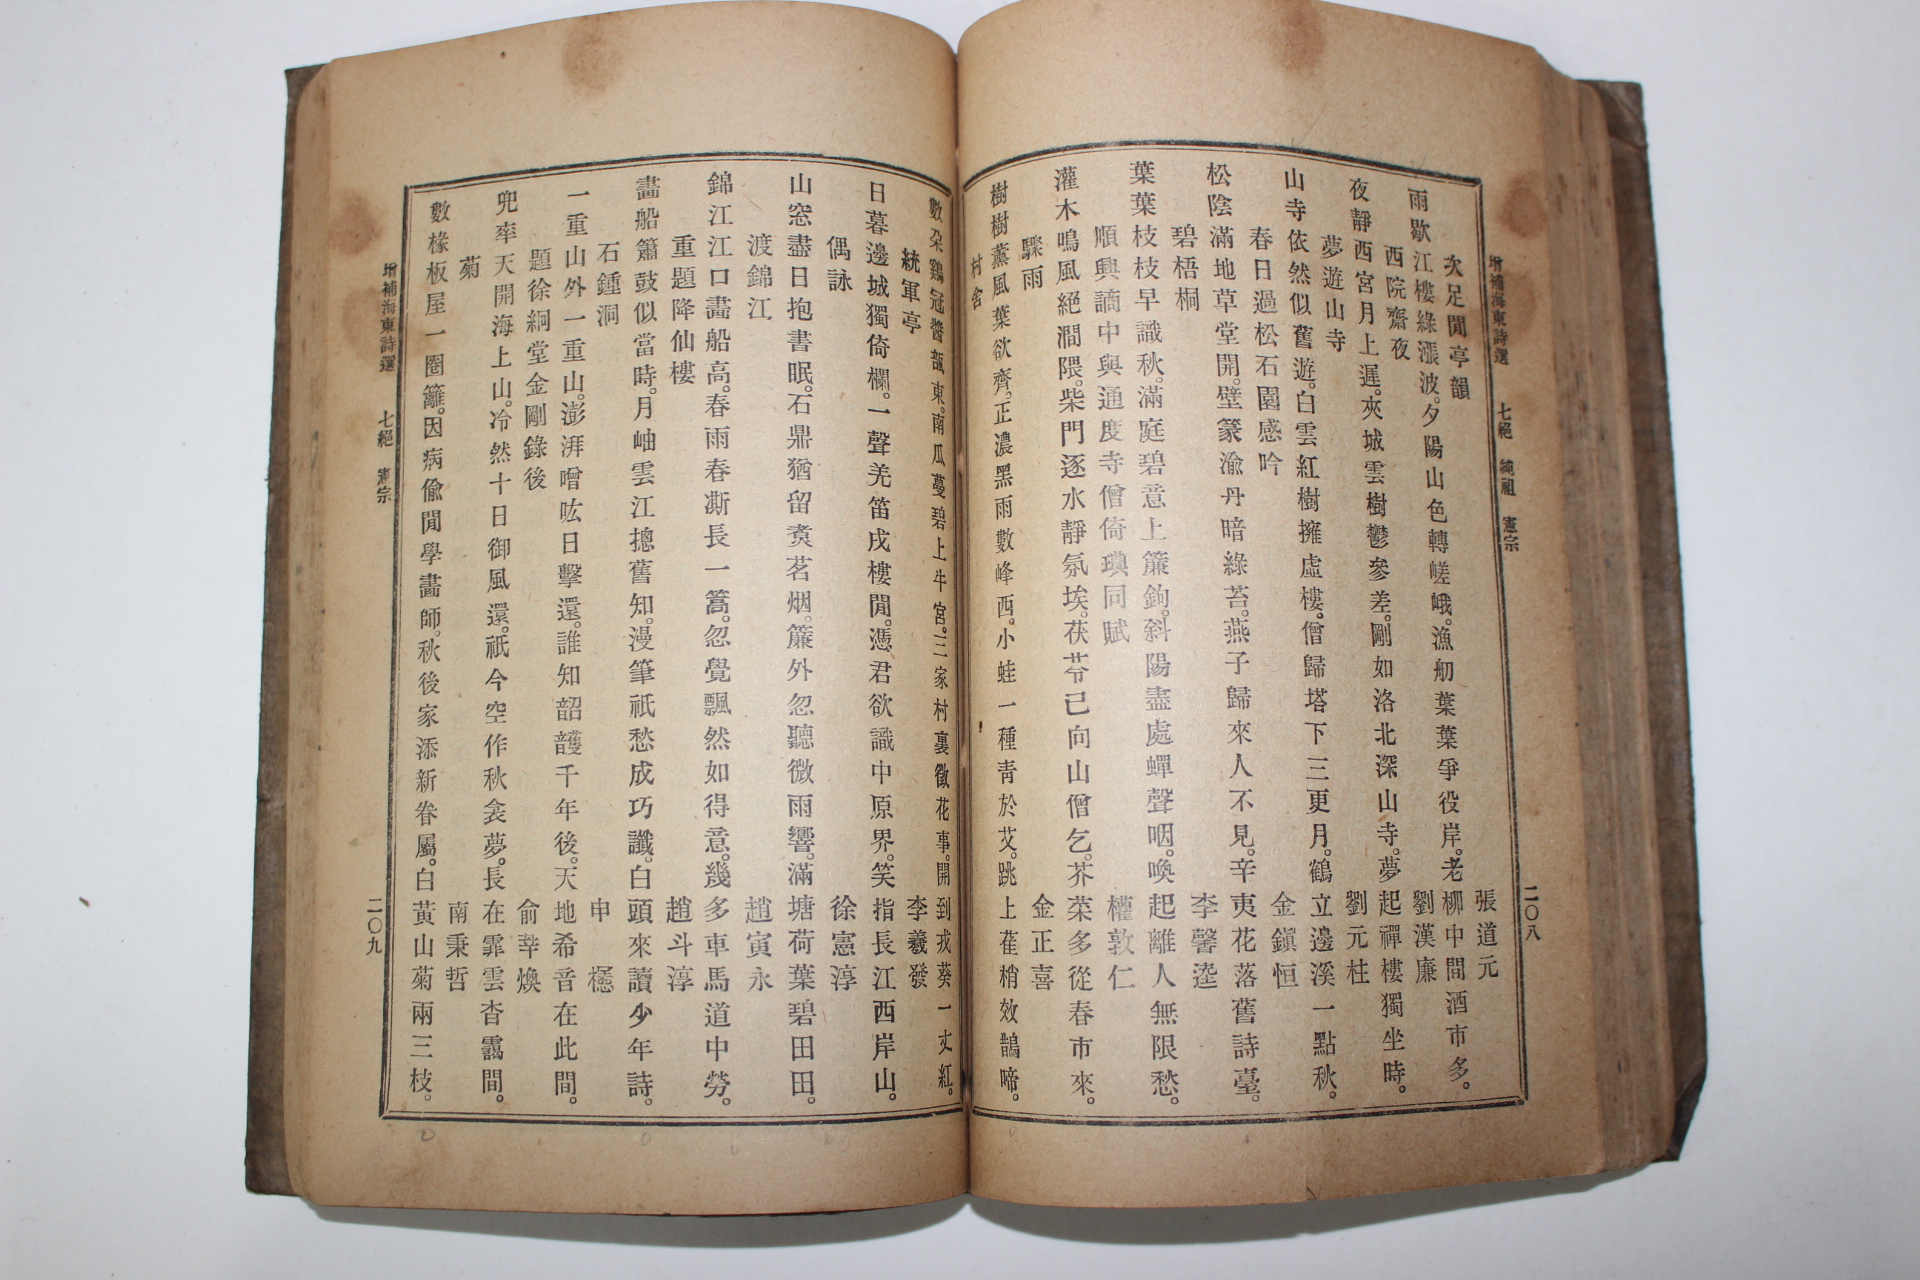 增補海東詩選 七絕 純祖 憲宗 二〇八
次足閒亭韻 張道元
雨歇江樓綠漲波。夕陽山色轉嵯峨。漁舠葉葉爭役岸。老柳中間酒市多。
西院齋夜 劉漢廉
夜靜西宮月上遲。夾城雲樹鬱參差。剛如洛北深山寺。夢起禪樓獨坐時。
夢遊山寺 劉元柱
山寺依然似舊遊。白雲紅樹擁虛樓。僧歸塔下三更月。鶴立邊溪一點秋。
春日過松石園感吟 金鎭恒
松陰滿地草堂開。壁篆渝丹暗綠苔。燕子歸來人不見。辛夷花落舊詩臺。
碧梧桐 李馨逵
葉葉枝枝早識秋。滿庭碧意上簾鉤。斜陽盡處蟬聲咽。喚起離人無限愁。
順興謫中與通度寺僧倚璵同賦 權敦仁
灌木鳴風絕澗隈。柴門逐水靜氛埃。茯苓已向山僧乞。芥菜多從春市來。
驟雨 金正喜
樹樹薰風葉欲齊。正濃黑雨數峰西。小蛙一種靑於艾。跳上萑梢效鵲啼。
村舍
數朶鷄冠醬瓿東。南瓜蔓碧上牛宮。三家村裏徵花事。開到戎葵一丈紅。
統軍亭 李羲發
日暮邊城獨倚欄。一聲羌笛戍樓閒。憑君欲識中原界。笑指長江西岸山。
偶詠 徐憲淳
山窓盡日抱書眠。石鼎猶留煑茗烟。簾外忽聽微雨響。滿塘荷葉碧田田。
渡錦江 趙寅永
錦江江口畵船高。春雨春澌長一篙。忽覺飄然如得意。幾多車馬道中勞。
重題降仙樓 趙斗淳
畵船簫鼓似當時。月岫雲江摠舊知。漫筆祇愁成巧讖。白頭來讀少年詩。
石鍾洞 申櫶
一重山外一重山。澎湃噌吰日擊還。誰知韶頀千年後。天地希音在此間。
題徐絅堂金剛錄後 俞莘煥
兜率天開海上山。冷然十日御風還。祇今空作秋衾夢。長在霏雲杳靄間。
菊 南秉哲
數椽板屋一圈籬。因病偸閒學畵師。秋後家添新眷屬。白黃山菊兩三枝。
增補海東詩選 七絕 憲宗 二〇九